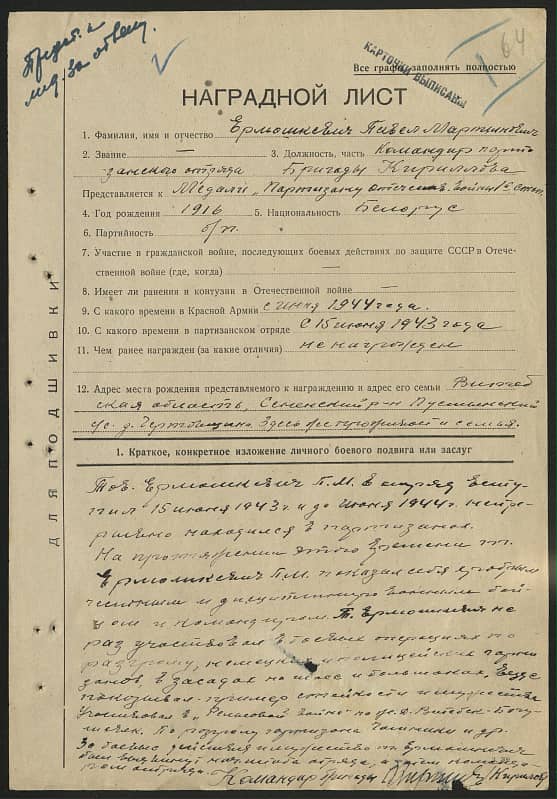 64
КАРТОЧКИ ВЫПИСАНЫ
Все графы заполнять полностью
НАГРАДНОЙ ЛИСТ
1. Фамилия, имя и отчество Ермошкевич Павел Мартинович
2. Звание — 3. Должность, часть Командир парти
занского отряда Бригады Кириллова
Представляется к Медали „Партизану отечеств. войны 1й степ.
4. Год рождения 1916 5. Национальность Белорус
6. Партийность б/п.
7. Участие в гражданской войне, последующих боевых действиях по защите СССР в Отече-
ственной войне (где, когда) —
8. Имеет ли ранения и контузии в Отечественной войне —
9. С какого времени в Красной Армии с июня 1944 года.
10. С какого времени в партизанском отряде С 15 июня 1943 года
11. Чем ранее награжден (за какие отличия) не награжден
12. Адрес места рождения представляемого к награждению и адрес его семьи Витеб
ская область, Сенненский р-н
с/с. д. Здесь же и семья.
1. Краткое, конкретное изложение личного боевого подвига или заслуг
Тов. Ермошкевич П.М. в отряд всту-
пил 15 июня 1943 г и до июня 1944 г. непре-
рывно находился в партизанах.
На протяжении этого времени т.
Ермошкевич П.М. показал себя
и дисциплинированным бой-
цом и командиром. Т. Ермошкевич не
раз участвовал в боевых операциях по
разгрому немецких и полицейских гарни
занов в засадах на шоссе и большаках, везде
показывал пример стойкости и мужества
Участвовал в „Рельсовой войне" на ж.д. Витебск-Богу-
шевск. По разгрому гарнизона и др.
За боевые действия и мужество т. Ермошкевич
был выдвинут отряда, а затем командо-
ром отряда.
Командир бригады Кириллов
ДЛЯ ПОДШИВКИ